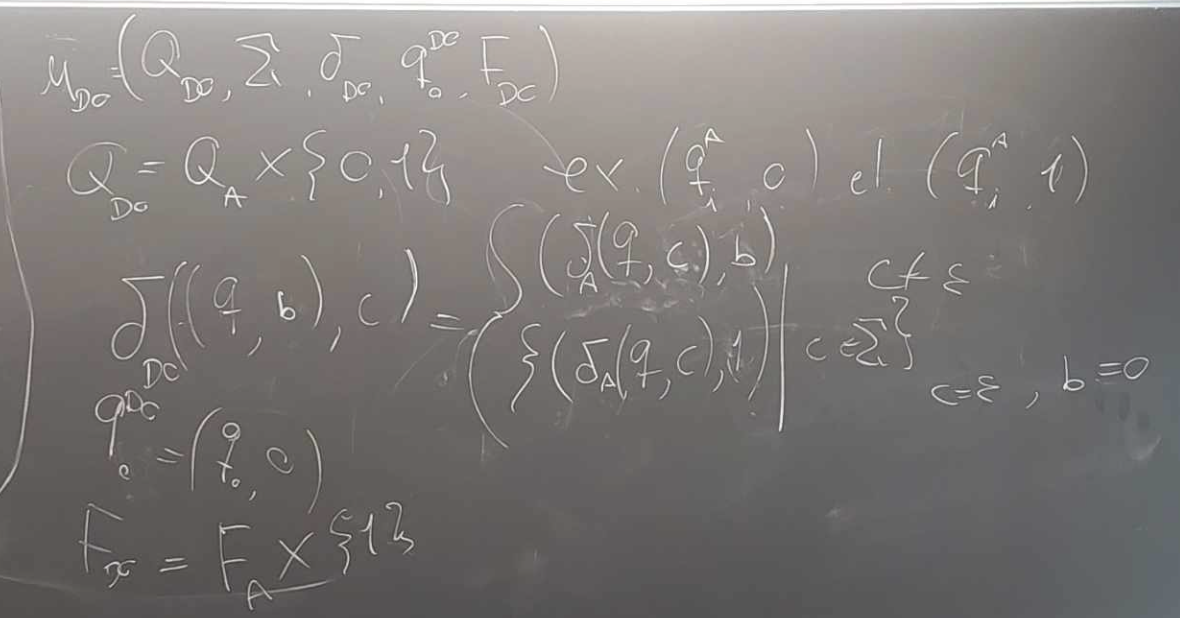 M_DC = (Q_DC, Σ, δ_DC, q_0^DC, F_DC)
Q_DC = Q_A × {0,1} ex. (q_1^A, 0) el. (q_1^A, 1)
δ_DC((q, b), c) = { (δ_A(q, c), b) | c ≠ ε
{(δ_A(q, c), 1) | c ∈ Σ} c=ε, b=0
q_0^DC = (q_0, 0)
F_DC = F_A × {1}